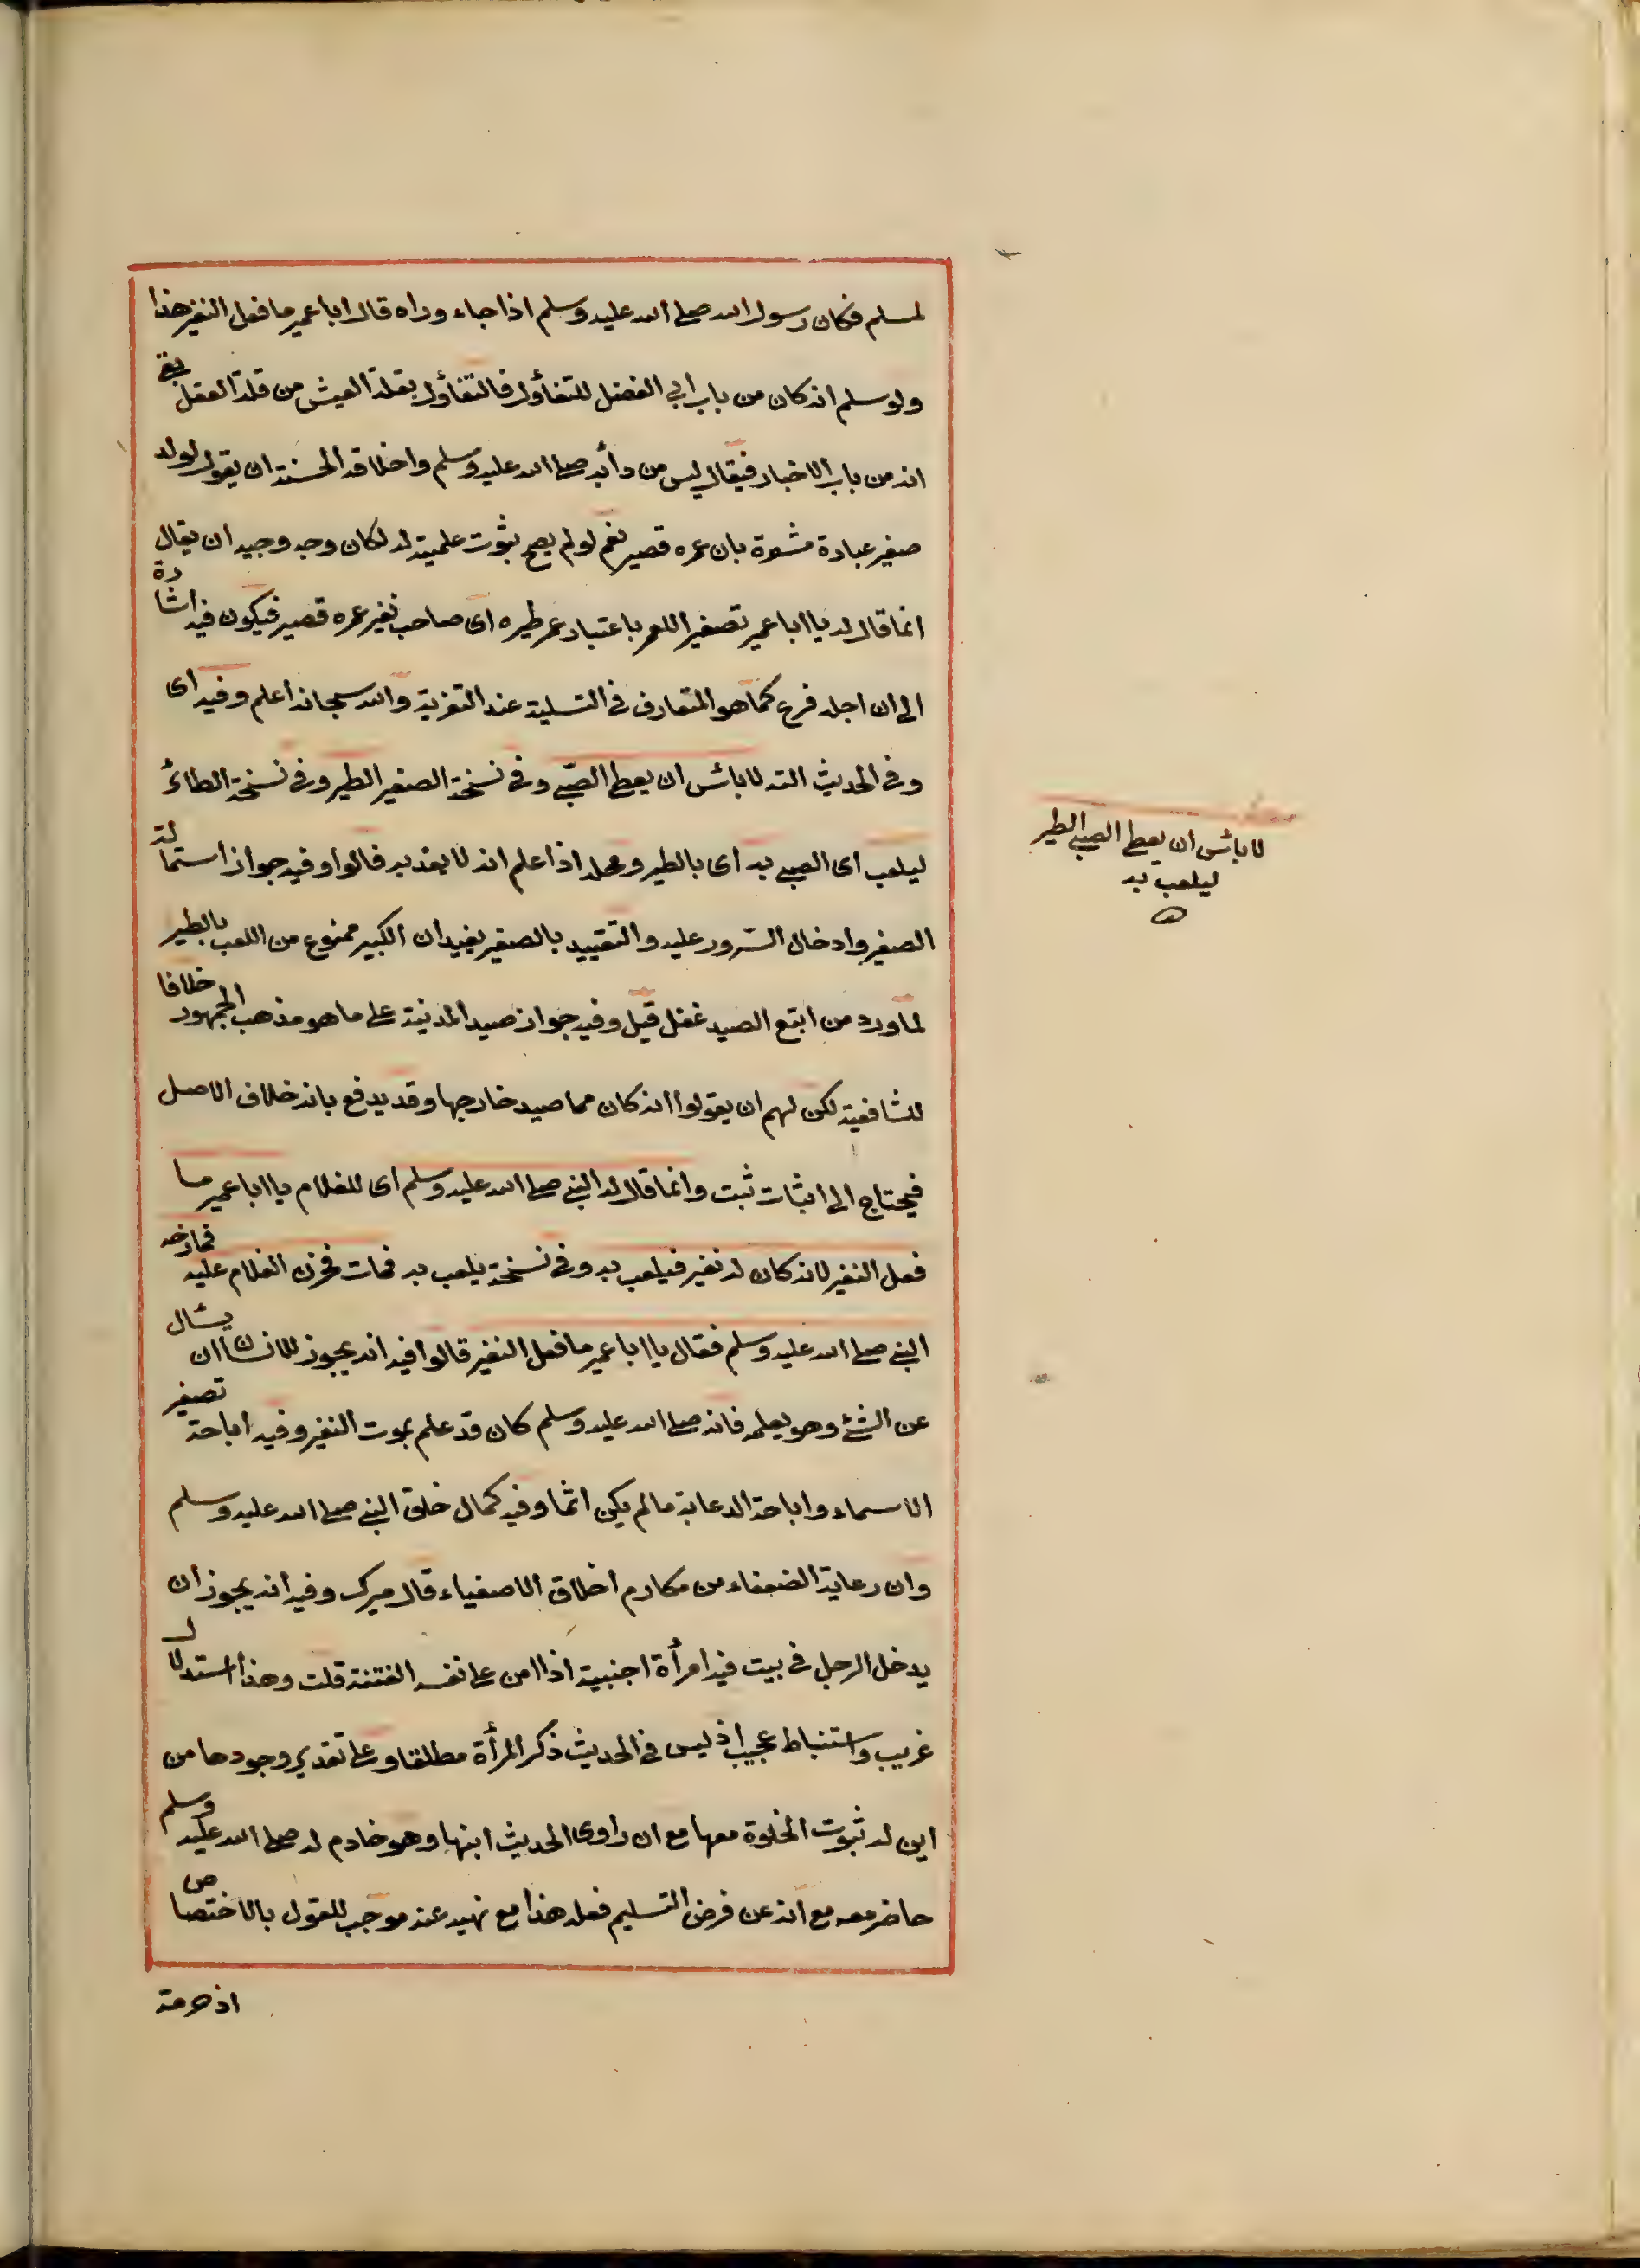 لمسلم فكان رسول الله صلى الله عليه وسلم اذا جاء وراه قال ابا عمير ما فعل النغير هذا
ولو سلم انه كان من باب ابي الفضل للتفاؤل فالتفاؤل بقلة العيش من قلة العقل بقي
انه من باب الاخبار فيقال ليس من دأبه صلى الله عليه وسلم واخلاقه الحسنة ان يقول لولد
صغير عبارة مشعرة بان عمره قصير نعم لو لم يصح ثبوت علميته له لكان وجه وجيه ان يقال
انما قال له يا ابا عمير تصغير اللعمر باعتبار عمر طيره اى صاحب نغير عمره قصير فيكون فيه اشارة
الى ان اجله فرغ كما هو المتعارف في التسلية عند التعزية والله سبحانه اعلم وفيه اى
وفي الحديث انه لا بائس ان يعطى الصبي وفي نسخة الصغير الطير وفي نسخة الطائر
ليلعب اى الصبي به اى بالطير ومحله اذا علم انه لا يعذبه قالوا وفيه جواز استمالة
الصغير وادخال السرور عليه والتقييد بالصغير يفيد ان الكبير ممنوع من اللعب بالطير
لما ورد من اتبع الصيد غفل قيل وفيه جواز صيد المدينة على ما هو مذهب الجمهور خلافا
للشافعية لكن لهم ان يقولوا انه كان مما صيد خارجها وقد يدفع بانه خلاف الاصل
فيحتاج الى اثبات ثبت وانما قال له النبي صلى الله عليه وسلم اى للغلام يا ابا عمير ما
فعل النغير لانه كان له نغير فيلعب به وفي نسخة يلعب به فمات فحزن الغلام عليه فمازحه
النبي صلى الله عليه وسلم فقال يا ابا عمير ما فعل النغير قالوا فيه انه يجوز للانسان ان يسأل
عن الشئ وهو يعلمه فانه صلى الله عليه وسلم كان قد علم بموت النغير وفيه اباحة تصغير
الاسماء واباحة الدعابة ما لم يكن اثما وفيه كمال خلق النبي صلى الله عليه وسلم
وان رعاية الضعفاء من مكارم اخلاق الاصفياء قال ميرك وفيه انه يجوز ان
يدخل الرجل في بيت فيه امرأة اجنبية اذا امن على نفسه الفتنة قلت وهذا استدلال
غريب واستنباط عجيب اذ ليس في الحديث ذكر المرأة مطلقا وعلى تقدير وجودها من
اين له ثبوت الخلوة معها مع ان راوى الحديث ابنها وهو خادم له صلى الله عليه وسلم
حاضر معه مع انه عن فرض التسليم فعله هذا مع نهيه عنه موجب للقول بالاختصاص
اذ حرمة
لا بائس ان يعطى الصبي الطير
ليلعب به